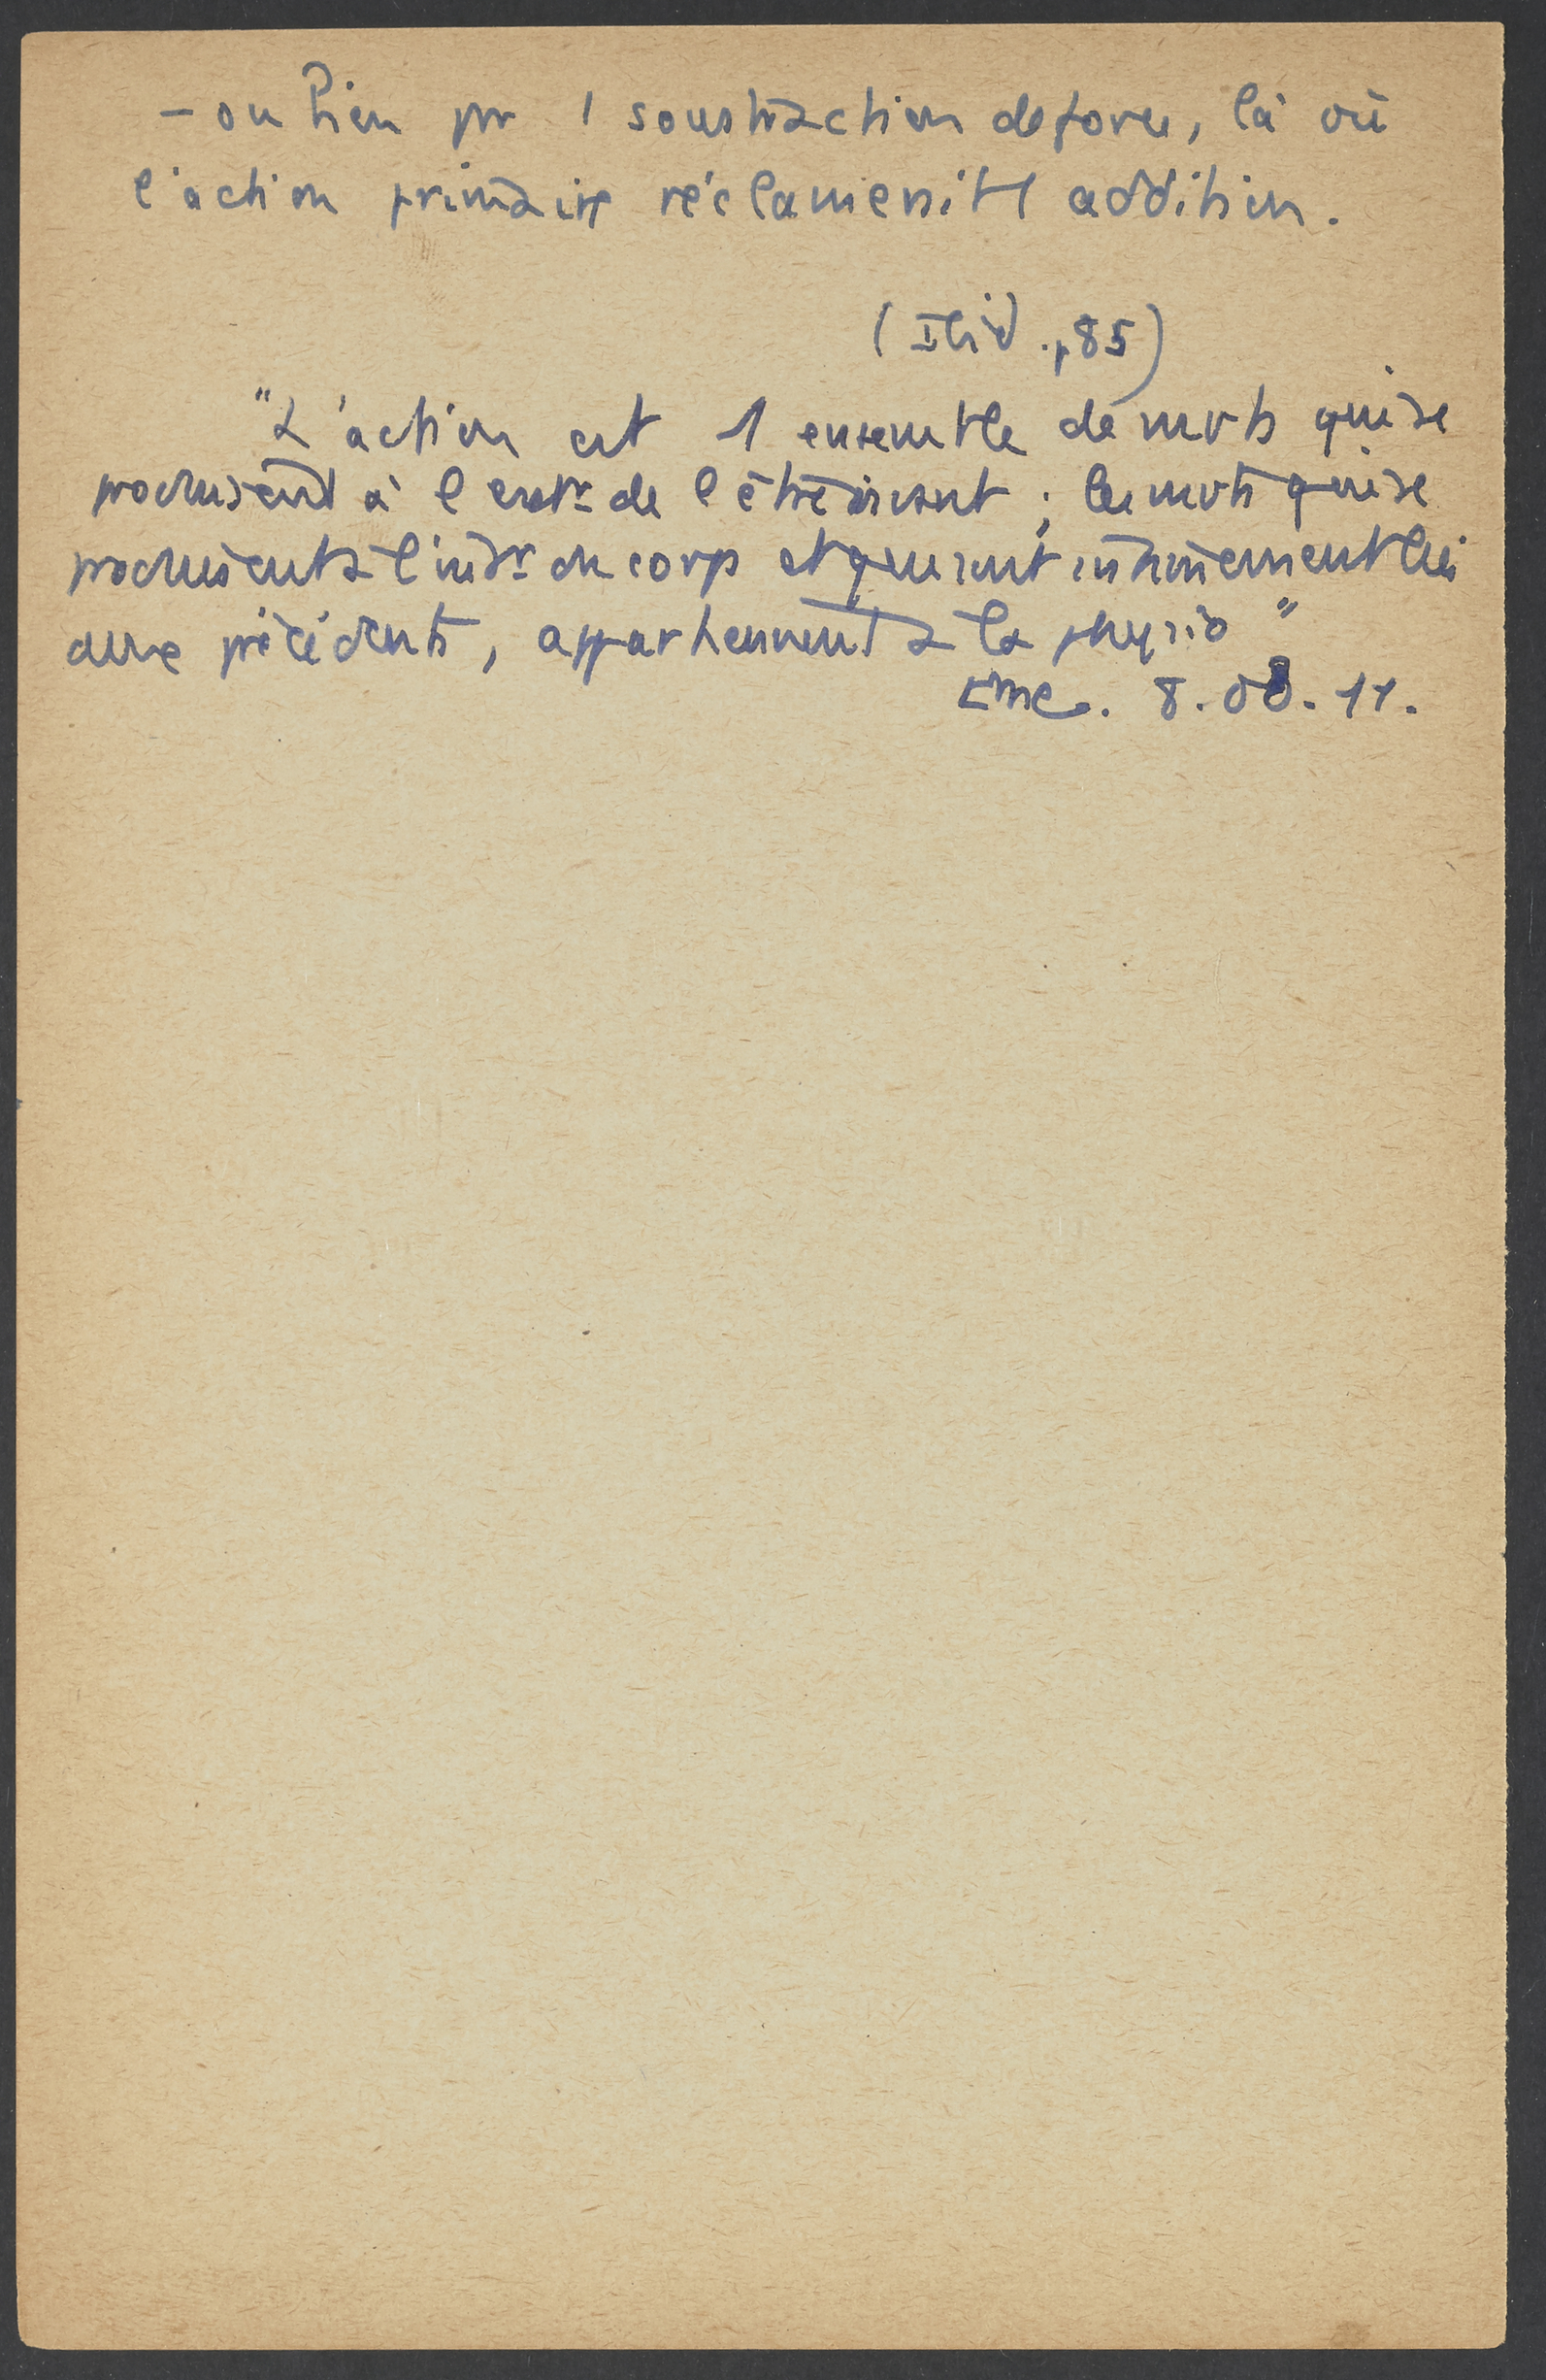 - ou bien par 1 soustraction de force, là où
l'action primaire réclamerait 1 addition.
(Ibid. p85)
"L'action est 1 ensemble de mvts qui se
produisent à l'extr de l'être vivant ; les mvts qui se
produisent à l'intr du corps et qui sont intimement liés
aux précédents, appartiennent à la physio"
8.08.11.